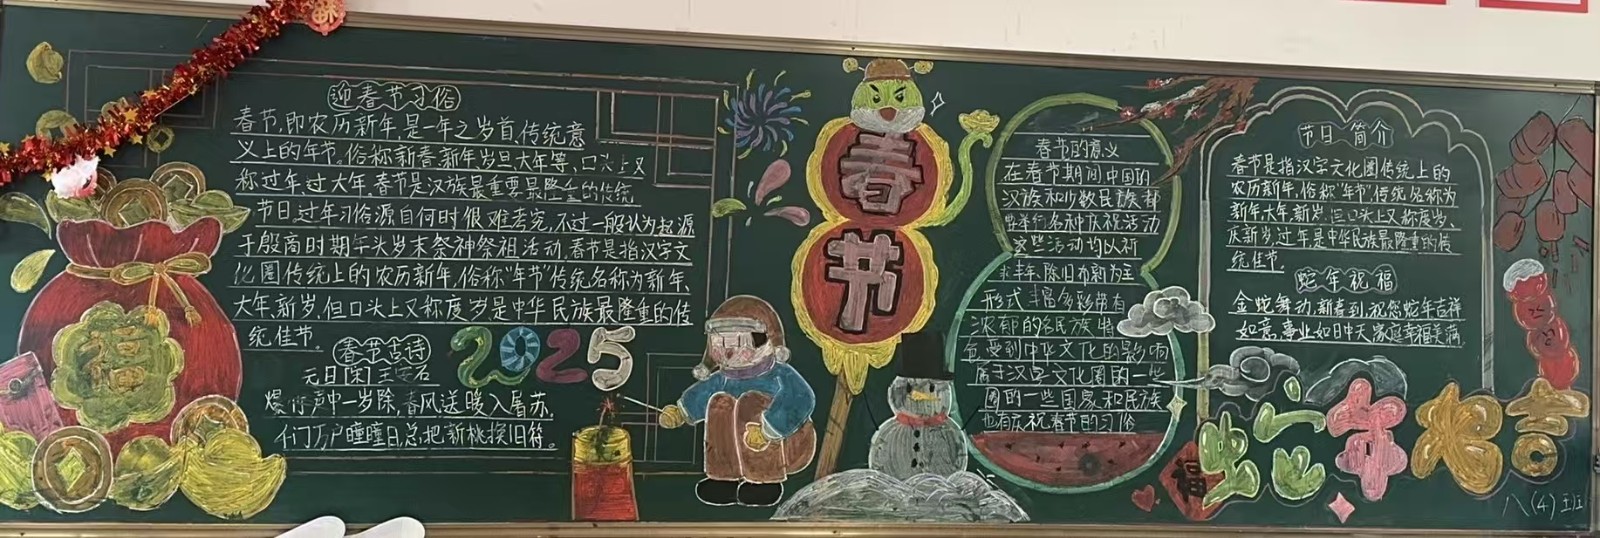 迎春节习俗
春节,即农历新年,是一年之岁首,传统意
义上的年节。俗称新春、新年岁旦大年等,口头上又
称过年过大年,春节是汉族最重要最隆重的传统
节日,过年习俗源自何时很难考究,不过一般认为起源
于殷商时期年头岁末祭神祭祖活动,春节是指汉字文
化圈传统上的农历新年,俗称“年节”传统名称为新年、
大年,新岁,但口头上又称度岁是中华民族最隆重的传
统佳节。
春节古诗
元日[宋]王安石
爆竹声中一岁除,春风送暖入屠苏,
千门万户瞳瞳日,总把新桃换旧符。
2025
福
春节
春节的意义
在春节期间中国的
汉族和少数民族都
要举行各种庆祝活动
这些活动均以祈
求丰年、除旧布新为主
形式丰富多彩带有
浓郁的各民族特
色,受到中华文化的影响
属于汉字文化圈的一些
国的一些国家和民族
也有庆祝春节的习俗
节日简介
春节是指汉字文化圈传统上的
农历新年,俗称“年节”,传统名称为
新年,大年,新岁,但口头上又称度岁、
庆新岁,过年,是中华民族最隆重的传
统佳节。
蛇年祝福
金蛇舞动,新春到,祝您蛇年吉祥
如意,事业如日中天,家庭幸福美满
福
蛇年大吉
八(4)班